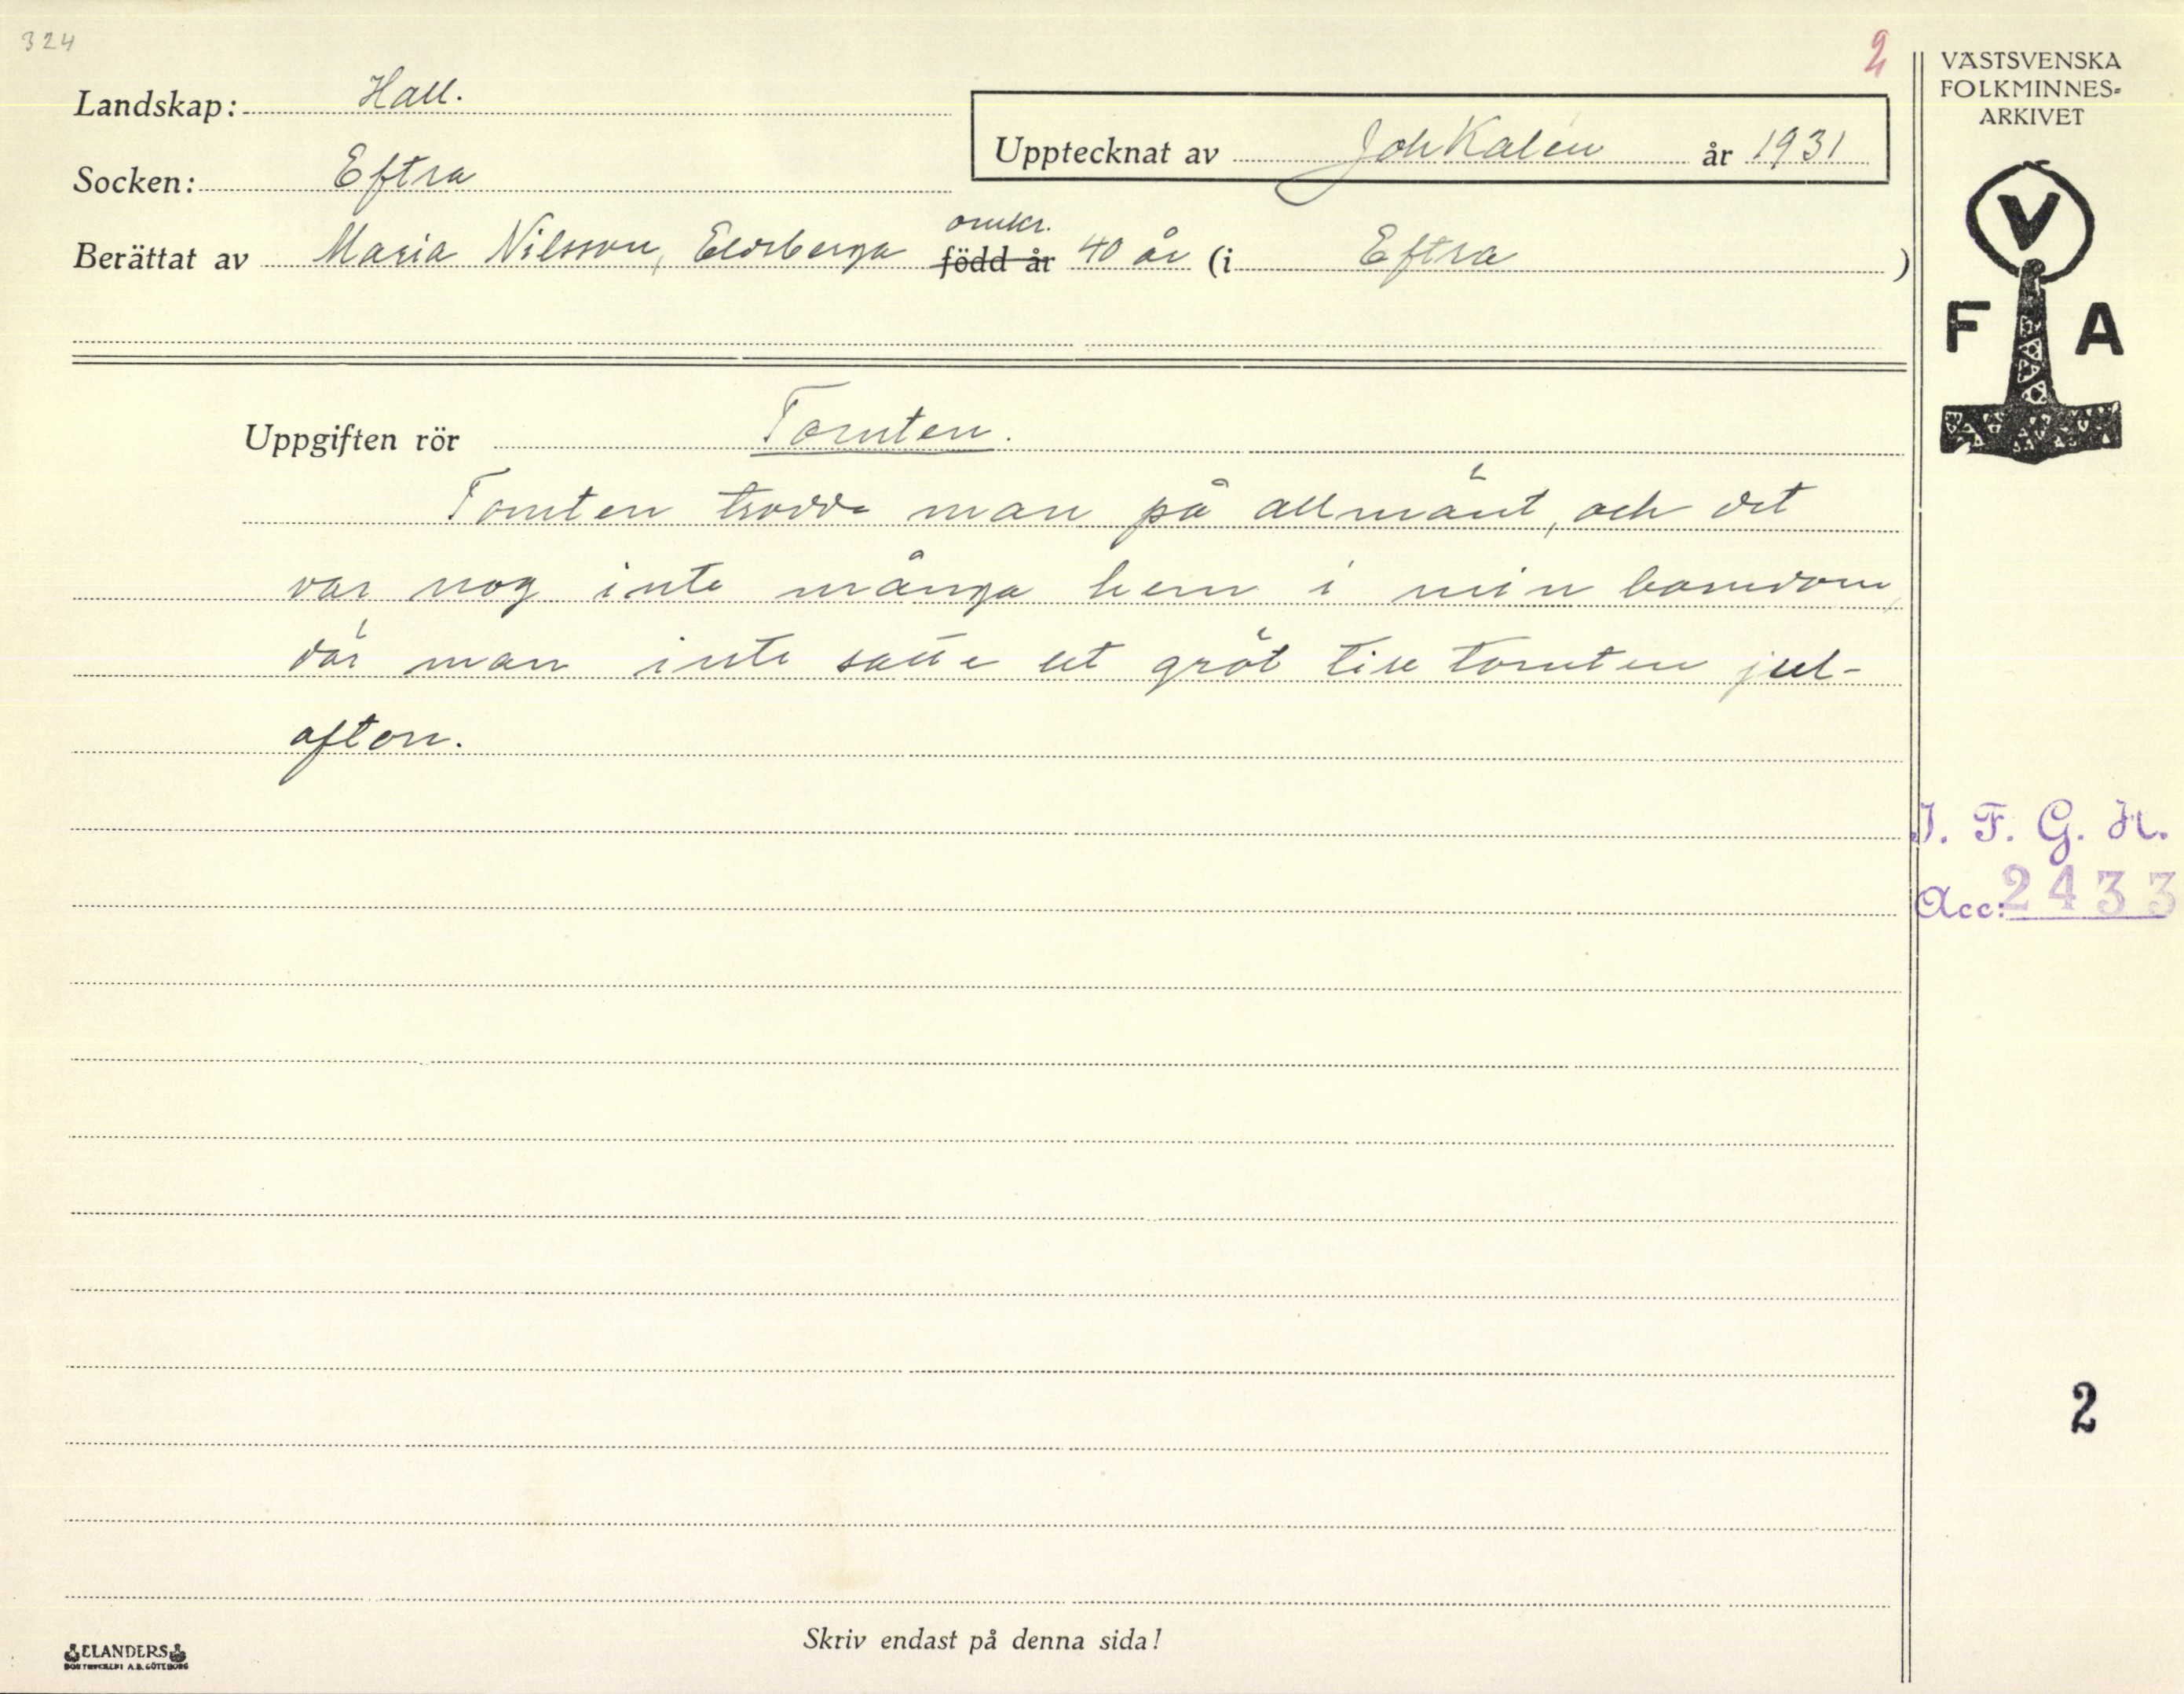 324
2
Landskap: Hall.
Upptecknat av Joh Kalén år 1931
Socken: Eftra
omkr.
Berättat av Maria Nilsson, Eldsberga född år 40 år (i Eftra )
Uppgiften rör Tomten.
Tomten trodde man på allmänt, och det
var nog inte många hem i min barndom,
där man inte satte ut gröt till tomten jul-
afton.
Skriv endast på denna sida!
ELANDERS
BOKTRYCKERI A.B. GÖTEBORG
VÄSTSVENSKA
FOLKMINNES-
ARKIVET
V
F A
I. F. G. H.
Acc: 2433
2